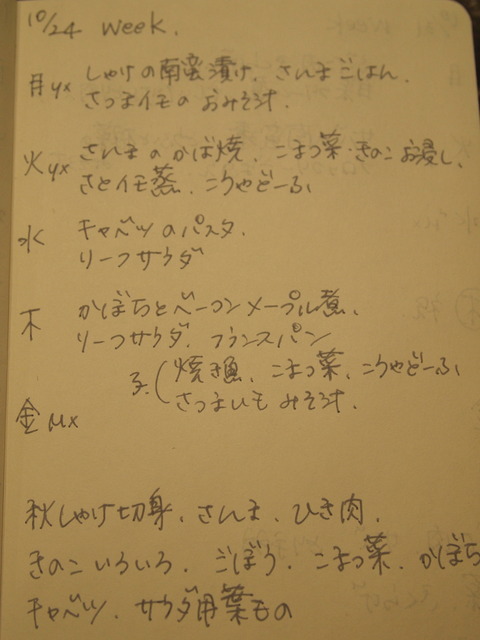 10/24 week.
月yx しゃけの南蛮漬け、さんまごはん.
さつまイモのおみそ汁.
火yx さんまのかば焼、こまつ菜・きのこお浸し、
さとイモ蒸、こうやどーふ
水 キャベツのパスタ.
リーフサラダ
木 かぼちゃとベーコンメープル煮、
リーフサラダ、フランスパン
子.(焼き魚、こまつ菜、こうやどーふ
さつまいもみそ汁.
金 Mx
秋しゃけ切身、さんま、ひき肉、
きのこいろいろ、ごぼう、こまつ菜、かぼち
キャベツ、サラダ用葉もの